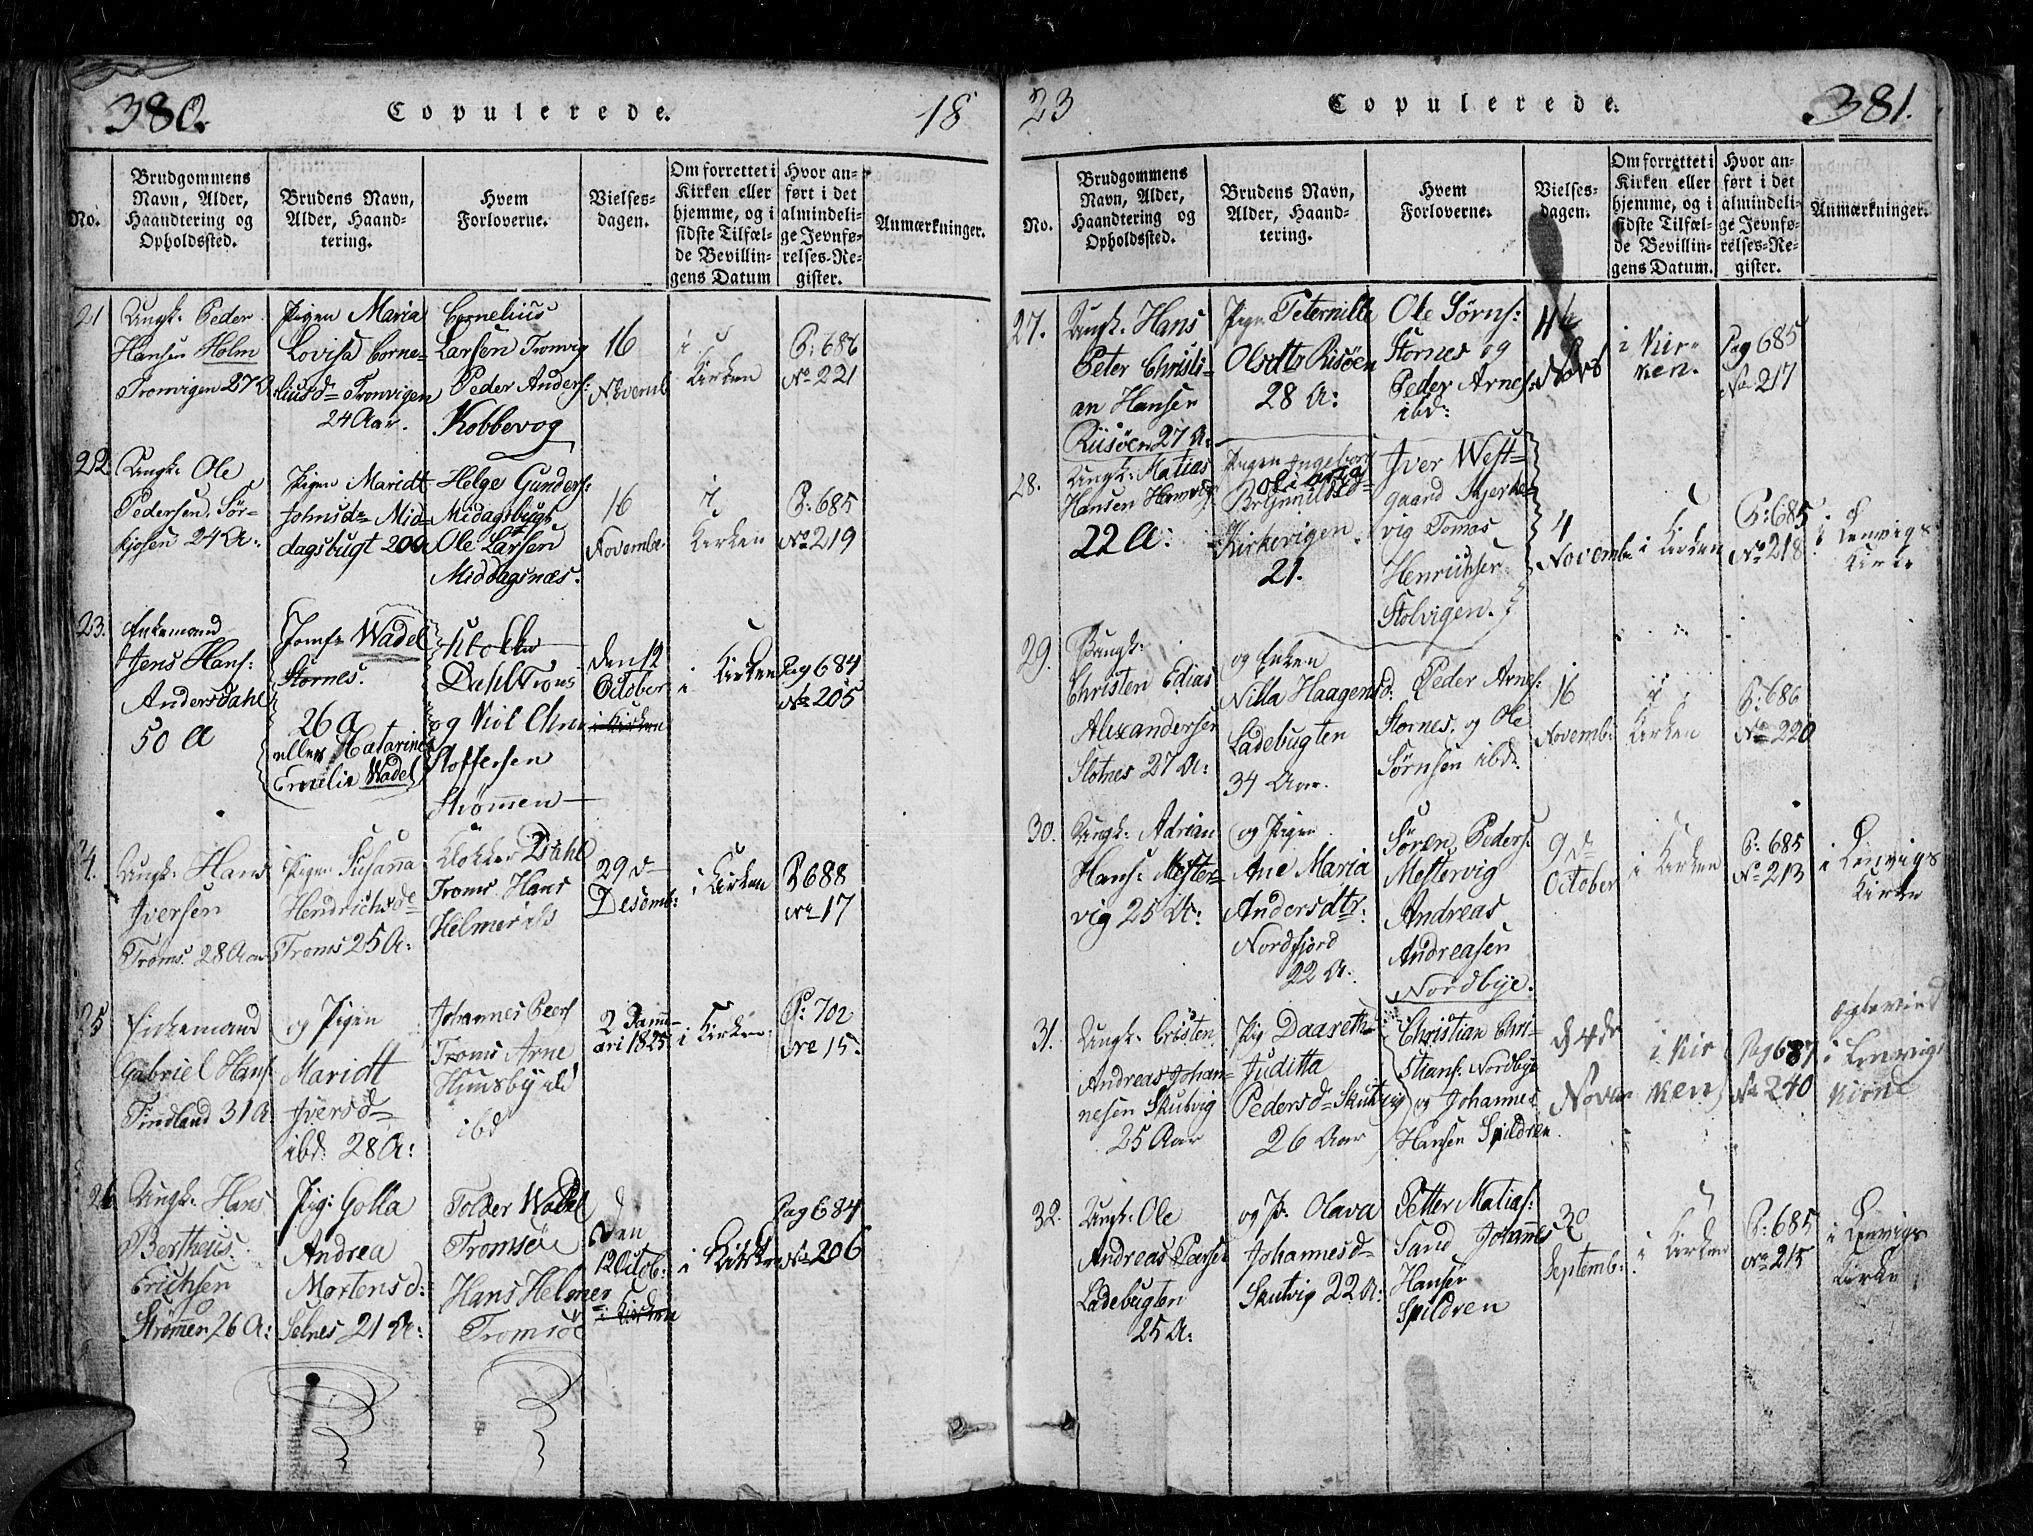 380.
Copulerede.
18
No.
Brudgommens
Navn, Alder,
Haandtering og
Opholdssted.
Brudens Navn,
Alder, Haand-
tering.
Hvem
Forloverne.
Vielses-
dagen.
Om forrettet i
Kirken eller
hjemme, og i
sidste Tilfæl-
de Bevillin-
gens Datum
Hvor an-
ført i det
almindeli-
ge Jevnfø-
relses-Re-
gister.
Anmærkninger.
21
Ungk. Peder
Hansen Holm
Tromvigen 27 A
Pigen Maria
Lovisa Corne-
liusd Tromvigen
24 Aar.
Cornelius
Larsen Tromvig
Peder Anders:
Kobbevog
16
Novemb
i
Kirken
P: 686
No 221
22
Ungk. Ole
Pedersen Sør-
kjosen 24 A:
Pigen Maridt
Johnsd Mid-
dagsbugt 20 A
Helge Gunders:
Midagsbugt
Ole Larsen
Middagsnæs.
16
Novembr.
i
Kirken
P: 685
No 219
23.
Enkemand
Jens Hans:
Andersdahl
50 A
Jomfr Wadel
Stornes.
26 A
eller Catarina
Emelia Wadel
Klokker
Dahl Troms
og Niel Chri
Stoffersen
Strømmen
den 12
October
i Kirken
i Kirken
Pag 684
No 205
24.
Ungk. Hans
Iversen
Troms. 28 Aar
Pigen Susanna
Hendrichsd
Troms 25 A:
Klokker Dahl
Troms Hans
Helmer ibd
29 d
Desemb:
i Kirken
P 688
No 17
25
Enkemand
Gabriel Hans:
Tindland 31 A:
og Pigen
Maridt
Iversd
ibd: 28 A:
Johannes Peers
Troms Arne
ibd
2 Janu-
ari 1825
i Kirken
P: 702
No 15.
26
Ungk. Hans
Bertheus
Erichsen
Strømmen 26 A:
Pig: Golla
Andrea
Mortensd:
Selnes 21 A:
Tolder Wadel
Tromsøe
Hans Helmer
Tromsøe
den
12 Octob:
i Kirken
i Kirken
Pag 684
No 206
23
Copulerede.
381.
No.
Brudgommens
Navn, Alder,
Haandtering og
Opholdssted.
Brudens Navn,
Alder, Haand-
tering.
Hvem
Forloverne.
Vielses-
dagen.
Om forrettet i
Kirken eller
hjemme, og i
sidste Tilfæl-
de Bevillin-
gens Datum.
Hvor an-
ført i det
almindeli-
ge Jevnfø-
relses-Re-
gister.
Anmærkninger.
27.
Ungk. Hans
Peter Christi-
an Hansen
Riisøen 27 A:
Pign Peternille
Olsdtr Risøen
28 A:
Ole Sørns:
Stornes og
Peder Arnes:
ibd:
4de
Nov
i Kir-
ken.
Pag 685
No 217
28.
Ungk. Matias
Hansen Hamvig
22 A:
Pigen Ingeborg
Olina
Kirkevigen
21.
Iver West-
gaard Kjerke-
vig Tomas
Henrichsen
Stolvigen.
4
Novemb
i Kirken
P: 685
No 218
i Lenvigs
Kirke
29.
Ungk.
Christen Edias
Alexandersen
Slotnes 27 A:
og Enken
Nilla Haagensd:
Ladebugten
34 Aar.
Peder Arnes:
Stornes, og Ole
Sørnsen ibd.
16
Novemb:
i
Kirken
P: 686
No 220
30.
Ungk. Adrian
Hans: Mester-
vig 25 A:
og Pigen
Ane Maria
Andersdtr:
Nordfjord
22 A:
Søren Peders:
Mestervig
Andreas
Andreasen
Nordbye.
9 d
October
i Kirken
P: 685
No 213
i Lenvigs
Kirke
31.
Ungk. Cristen
Andreas Johan-
nesen Skutvig
25 Aar
Pig Daarethe
Juditta
Pedersd Skutvig
26 Aar
Christian Chri-
stians: Nordbye
og Johannes
Hansen Spildren.
d 4de
Novem
i Kir
ken
Pag 687
No 240
i Lenvigs
Kirke
32.
Ungk: Ole
Andreas Peersen
Ladebugten
25 A:
og P. Olava
Johannesd
Skutvig 22 A:
Petter Matias:
Sand Johannes
Hansen
Spildren
30
Septemb:
i Kirken
P: 685
No 215
i Lenvigs
Kirke